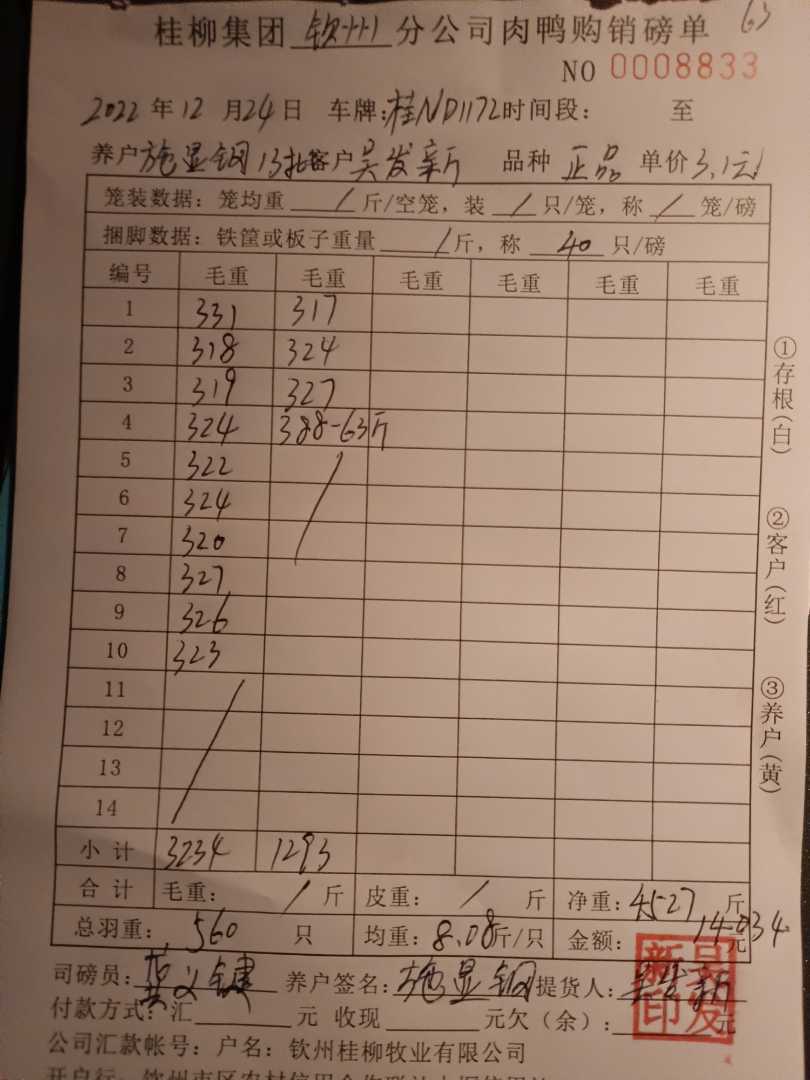 63
桂柳集团 钦州 分公司肉鸭购销磅单
NO 0008833
2022 年 12 月 24 日 车牌:桂ND1172 时间段: 至
养户 施显钢 13批 客户 吴发新 品种 正品 单价 3.1元
笼装数据: 笼均重 / 斤/空笼, 装 / 只/笼, 称 / 笼/磅
捆脚数据: 铁筐或板子重量 / 斤, 称 40 只/磅
编号 毛重 毛重 毛重 毛重 毛重 毛重
1 331 317
2 318 324
3 319 327
4 324 388-63斤
5 322 /
6 324
7 320
8 327
9 326
10 323
11 /
12
13
14
小计 3234 1293
合计 毛重: / 斤 皮重: / 斤 净重: 4527 斤
总羽重: 560 只 均重: 8.08 斤/只 金额: 14034 元
司磅员: 义键 养户签名: 施显钢 提货人: 吴发新
付款方式: 汇 元 收现 元欠(余): 元
公司汇款帐号: 户名: 钦州桂柳牧业有限公司
①存根(白)
②客户(红)
③养户(黄)
新吴
印发